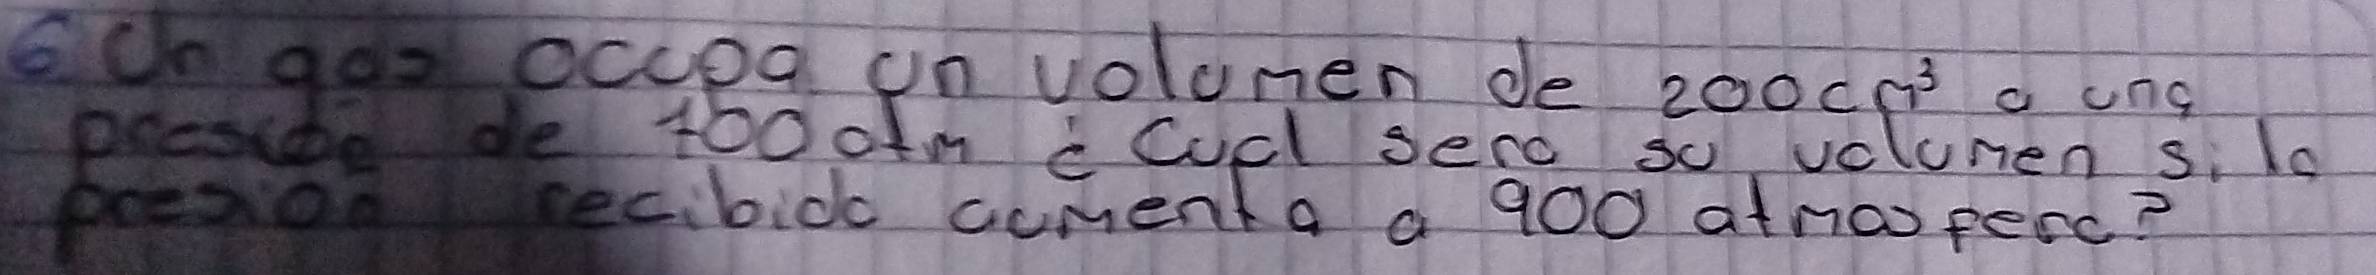 6 Un gas occupa un volumen de 200cm³ a una
presión de 100 atm ¿ Cual sera su volumen si la
presion recibida aumenta a 900 atmosfera?